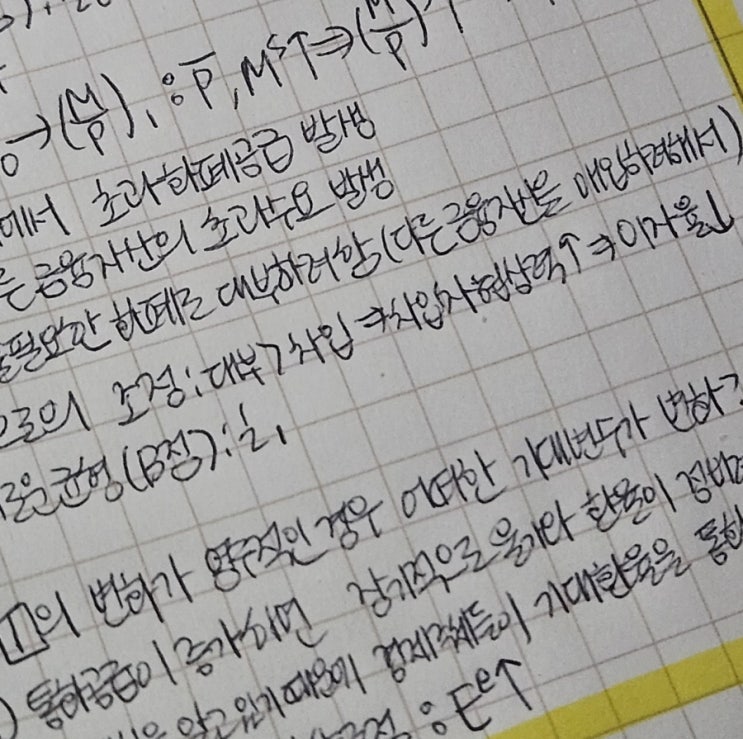 0→(M/P)₁ ∵ P̄, Mˢ↑⇒(M/P)↑
에서 초과화폐공급 발생
른 금융자산의 초과수요 발생
불필요한 화폐로 대부하려함(다른 금융자산을 매입하려해서)
으로의 조정: 대부>차입⇒차입자 협상력↑⇒이자율↓
로운 균형(B점): i₁
1의 변화가 영구적인 경우 어떠한 기대변수가 변하
통화공급이 증가하면 장기적으로 물가와 환율이 정비
알고있기때문에 경제주체들이 기대환율을 통화
: Eᵉ↑